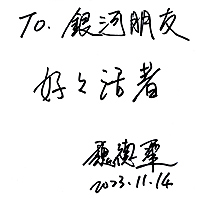 To. 銀河朋友
好々活著
2023.11.14